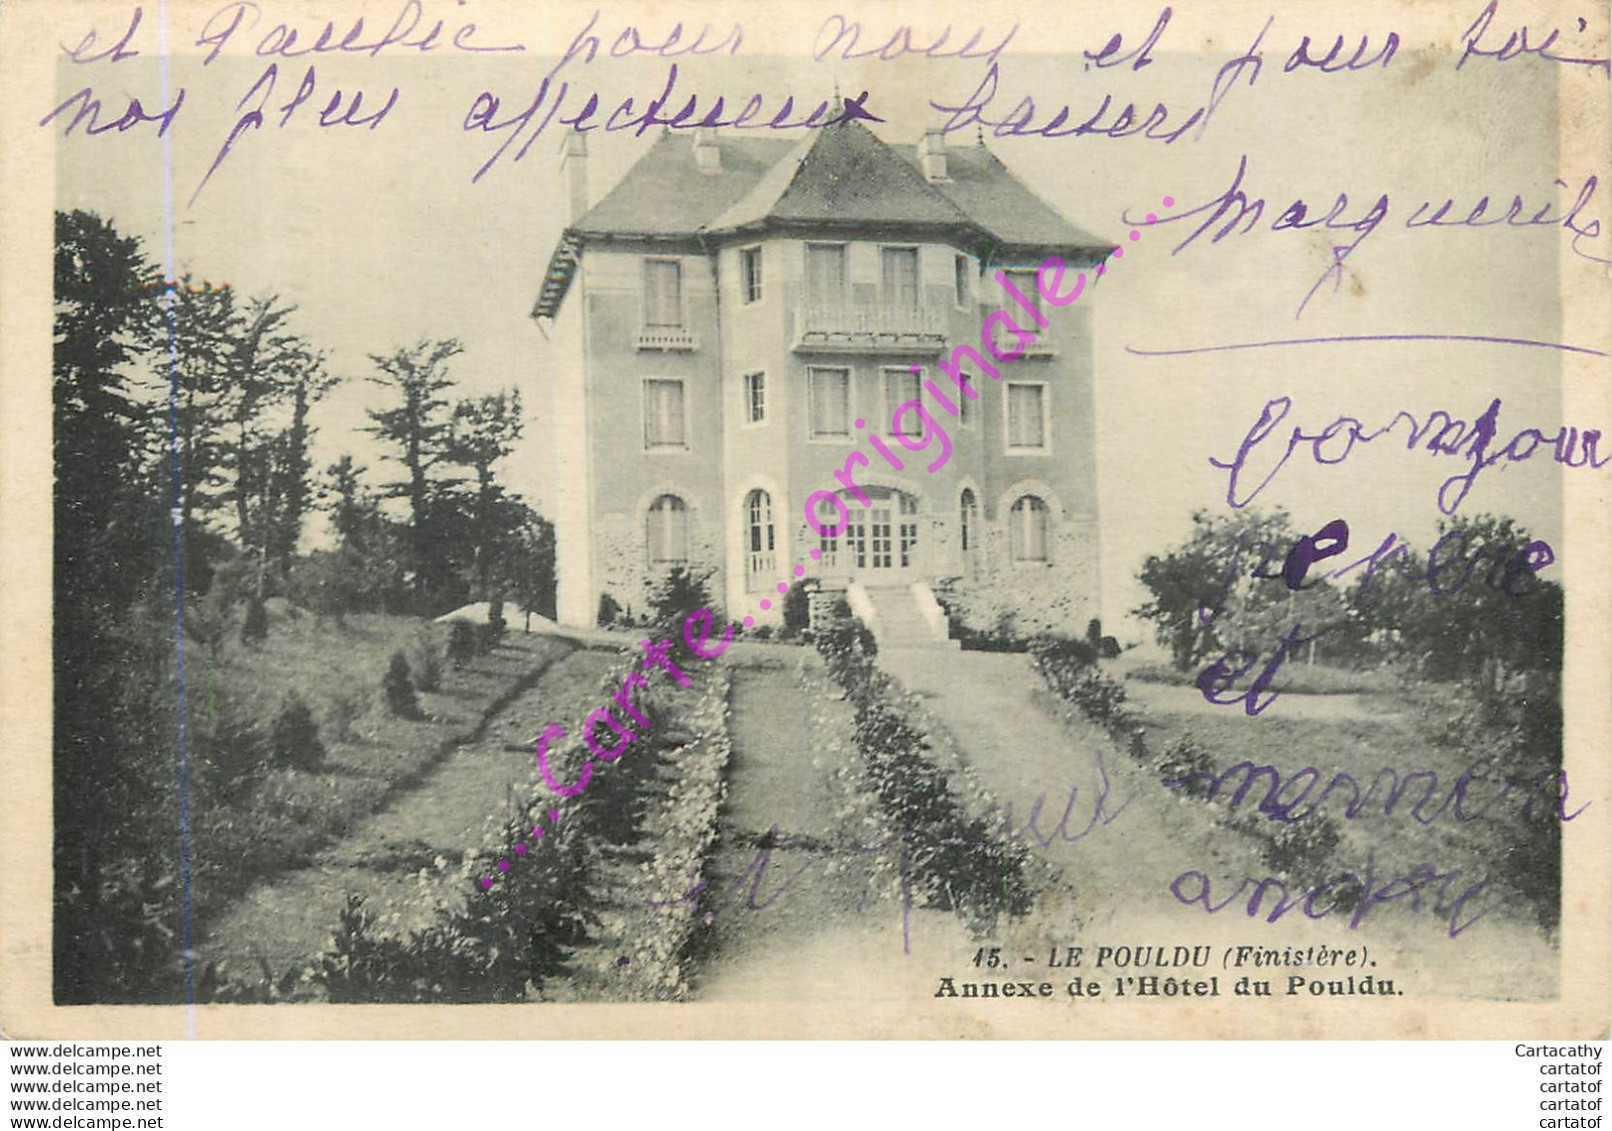 et Paulie pour nous et pour toi
nos plus affectueux baisers
Marguerite
bonjour
pepere
et
memer
Carte......originale....
15. - LE POULDU (Finistère).
Annexe de l'Hôtel du Pouldu.
www.delcampe.net
www.delcampe.net
www.delcampe.net
www.delcampe.net
www.delcampe.net
Cartacathy
cartatof
cartatof
cartatof
cartatof